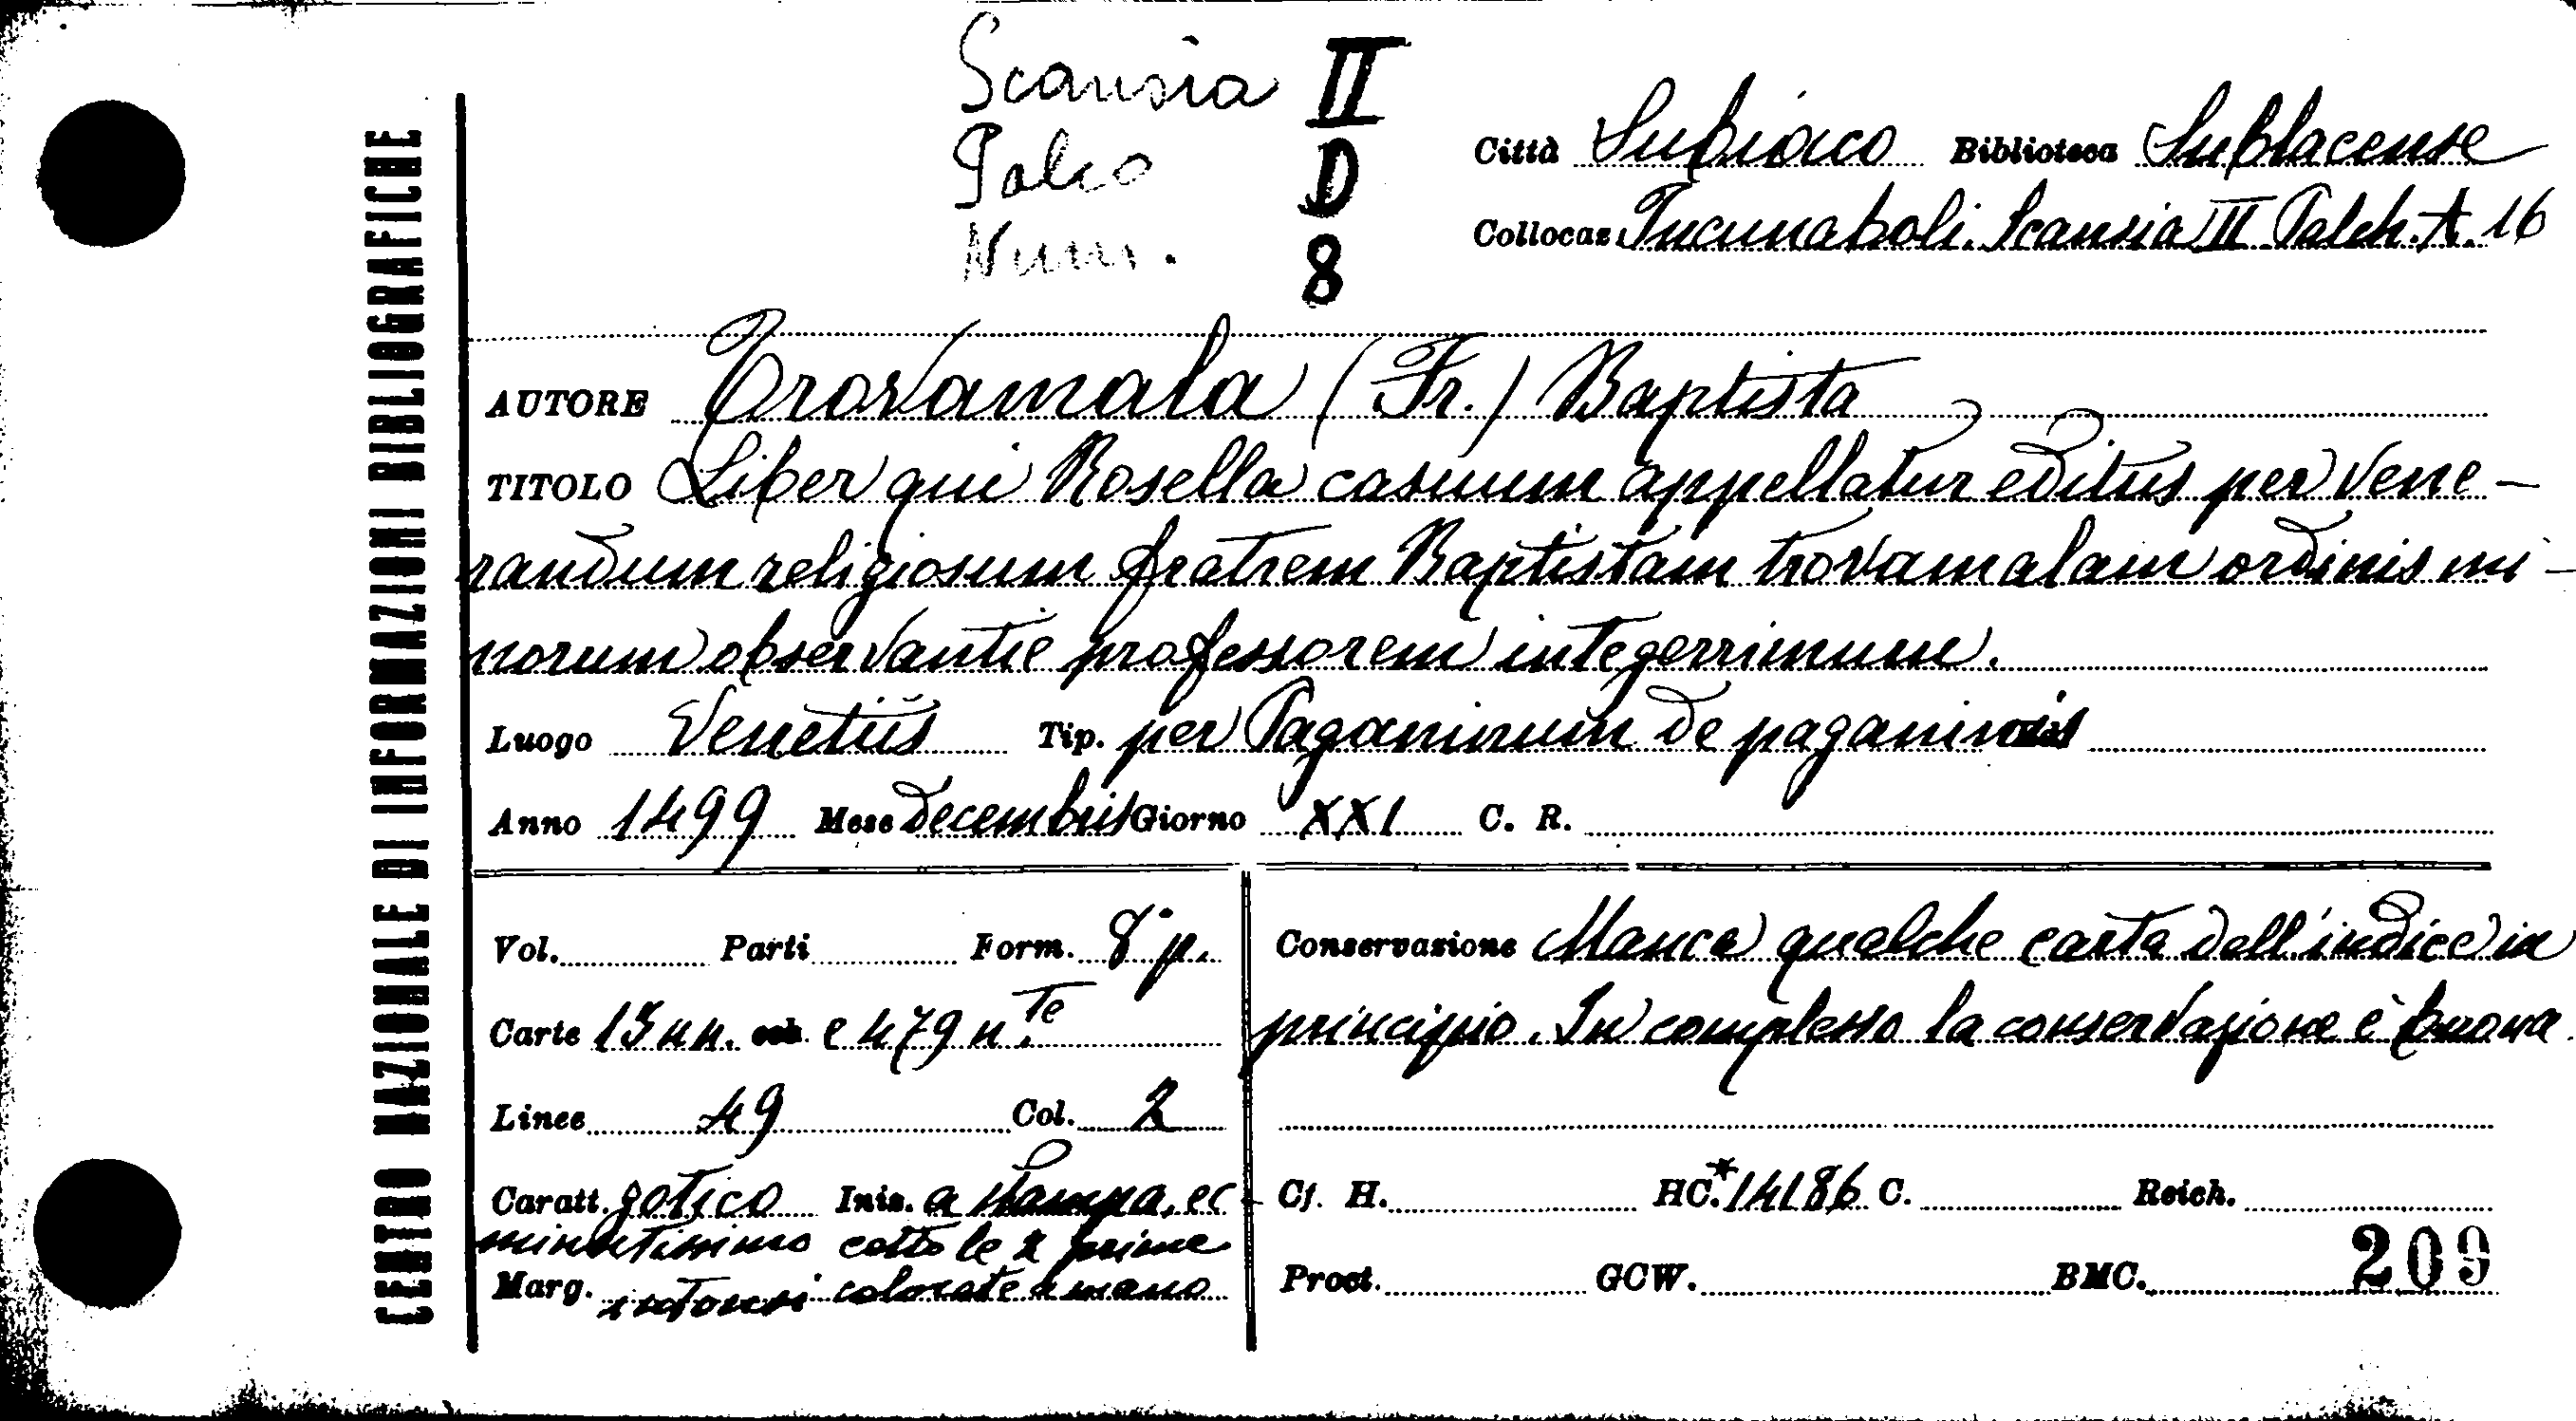 CENTRO NAZIONALE DI INFORMAZIONI BIBLIOGRAFICHE
Scansia II
Palco D
Num. 8
Città Subiaco Biblioteca Sublacense
Collocaz. Incunaboli. Scansia III Palch. A. 16
AUTORE Trovamala (Fr.) Baptista
TITOLO Liber qui Rosella casuum appellatur editus per vene-
randum religiosum fratrem Baptistam trovamalam ordinis mi-
norum observantie professorem integerrimum.
Luogo Venetiis Tip. per Paganinum de paganinis
Anno 1499 Mese decembris Giorno XXI C. R.
Vol. Parti Form. 8° p.
Carte 13 nn. e 479 n.te
Linee 49 Col. 2
Caratt. gotico Iniz. a stampa, ec-
minutissimo cetto le 2 prime
Marg. intonsi colorate a mano
Conservazione Manca qualche carta dell'indice in
principio. In complesso la conservazione è buona.
Cf. H. HC.* 14186 C. Reich.
Proct. GCW. BMC. 209